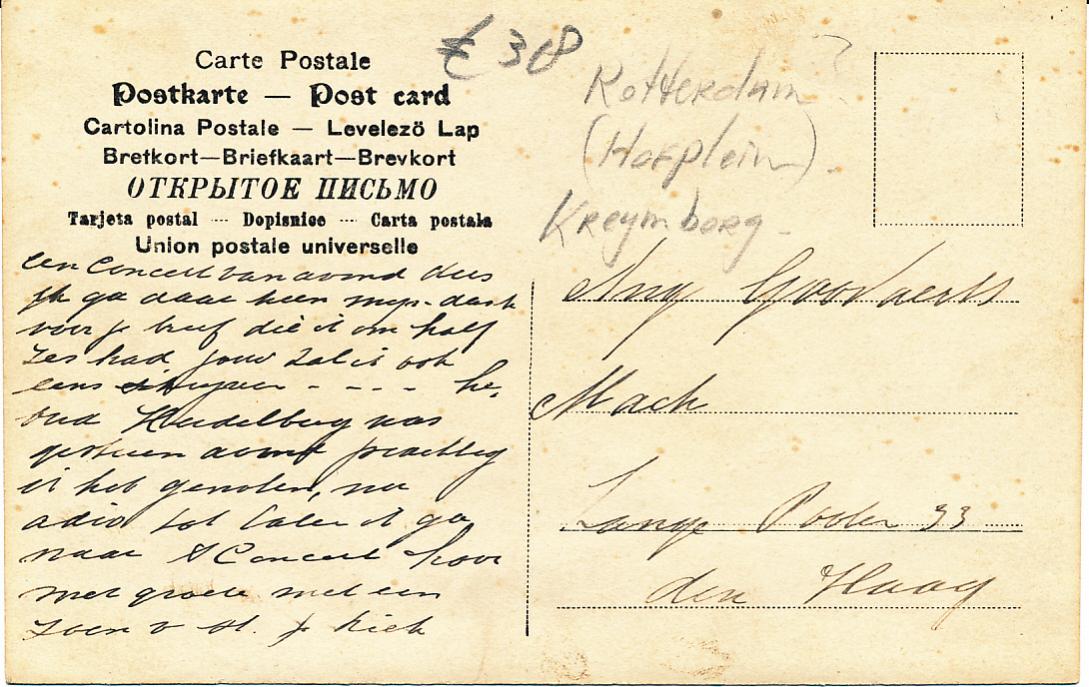 Carte Postale
Postkarte — Post card
Cartolina Postale — Levelező Lap
Brefkort—Briefkaart—Brevkort
ОТКРЫТОЕ ПИСЬМО
Tarjeta postal ··· Dopisnice ··· Carta postala
Union postale universelle
£ 30
Rotterdam ?
(Hofplein).
Kreymborg -
een Concert van avond dus
ik ga daar heen dank
voor je brief die ik om half
zes had jouw zal ik ook
eens - - - - he,
oud Heidelberg was
gisteren avond prachtig
ik heb genoten, nu
adio tot later ik ga
naar t Concert hoor
met groete met een
zoen v
Any Govvaerts
Mach
Lange Poten 33
den Haag